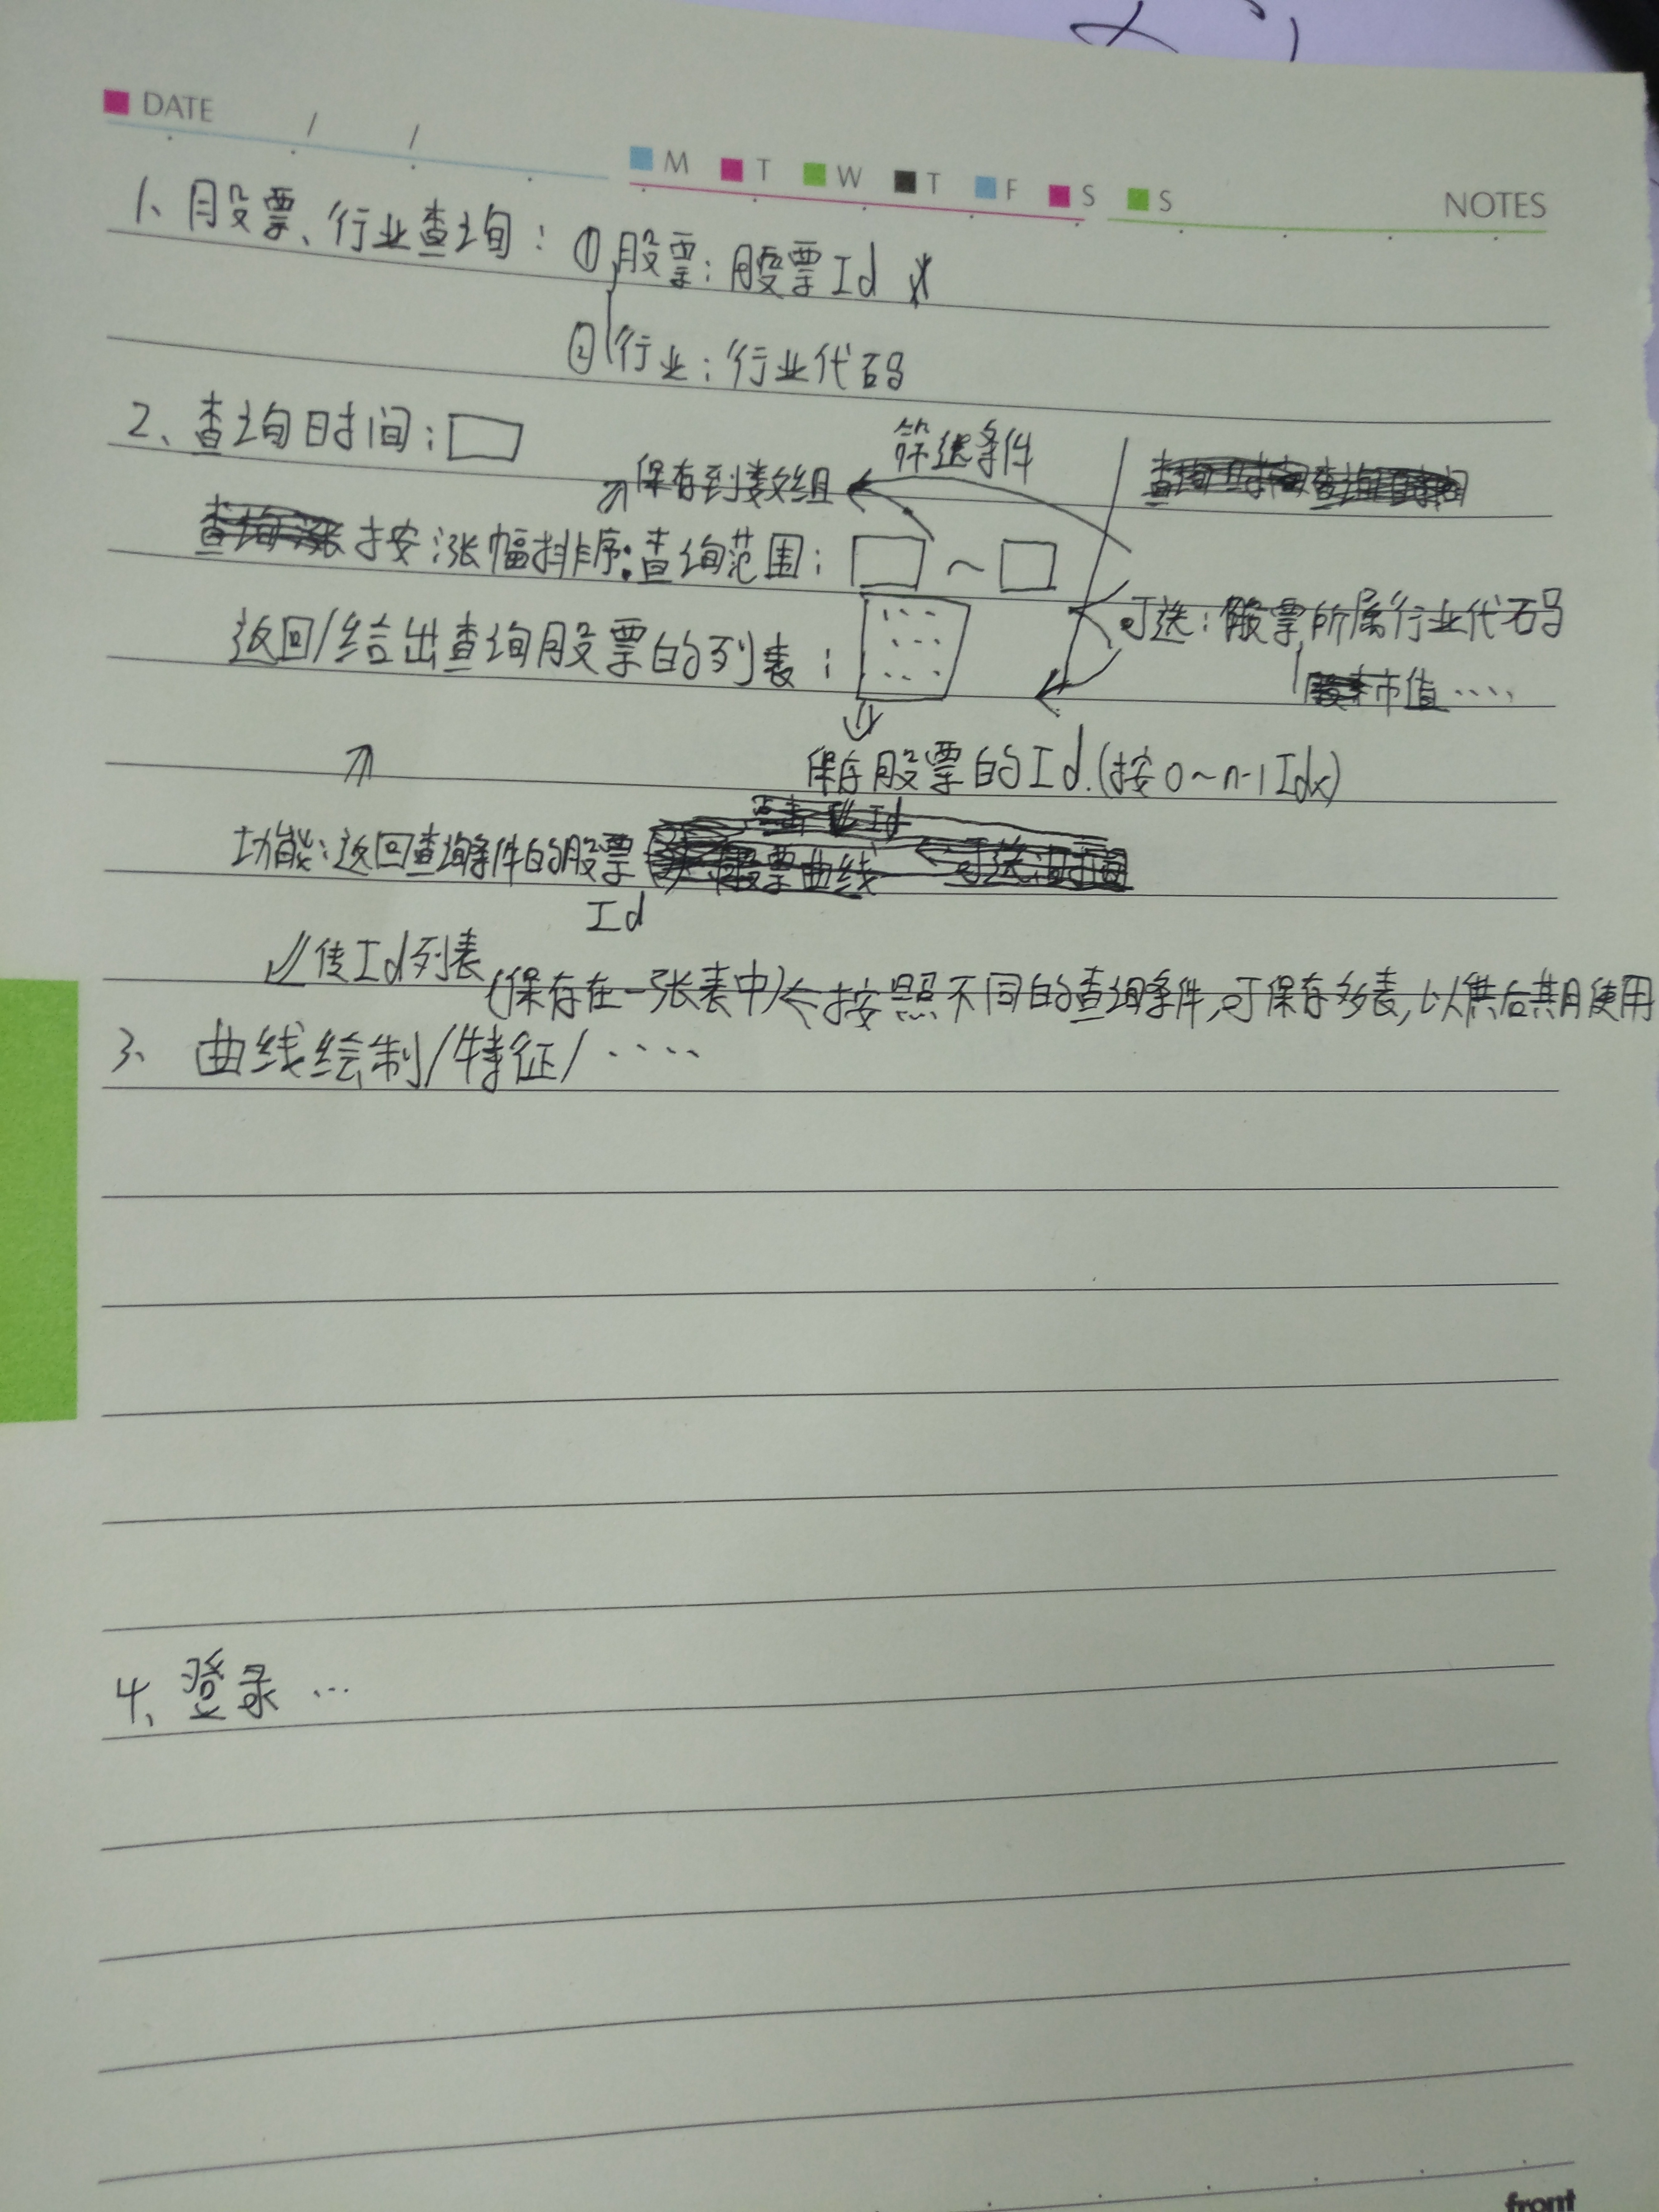 DATE / /
M T W T F S S
NOTES
1、股票、行业查询：①股票：股票Id
②行业：行业代码
2、查询时间：
筛选条件
保存到数组
按涨幅排序：查询范围： ～
可选：股票所属行业代码
市值……
返回/给出查询股票的列表：
保存股票的Id.(按0～n-1 Idx)
功能：返回查询条件的股票
Id
传Id列表
(保存在一张表中)←按照不同的查询条件,可保存多表,以供后期使用
3、曲线绘制/特征/‥‥
4、登录…
front